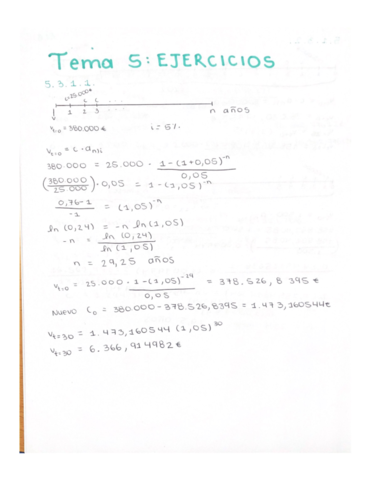 Tema 5: EJERCICIOS
5.3.1.1.
c=25.000€
c c
1 2 3 n años
V₍t=0₎ = 380.000 € i = 5%
V₍t=0₎ = c · a n┐i
380.000 = 25.000 · (1-(1+0,05)⁻ⁿ)/0,05
(380.000/25.000) · 0,05 = 1-(1,05)⁻ⁿ
(0,76-1)/-1 = (1,05)⁻ⁿ
ln (0,24) = -n ln (1,05)
-n = ln (0,24)/ln (1,05)
n = 29,25 años
V₍t=0₎ = 25.000 · (1-(1,05)⁻²⁹)/0,05 = 378.526,8395 €
NUEVO C₀ = 380.000 - 378.526,8395 = 1.473,160544€
V₍t=30₎ = 1.473,160544 (1,05)³⁰
V₍t=30₎ = 6.366,914982€